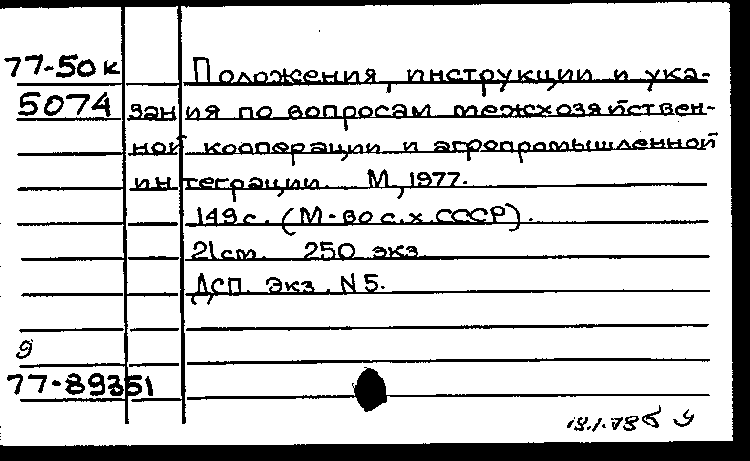 77-50к Положения, инструкции и ука-
5074 зания по вопросам межхозяйствен-
ной кооперации и агропромышленной
интеграции. М., 1977.
149с. (М-во с.х. СССР).
21см. 250 экз.
ДСП. Экз. N 5.
9
77-89351